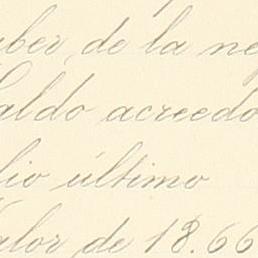 aber, de la ne
Saldo acreedo
lio último
Valor de 18.66